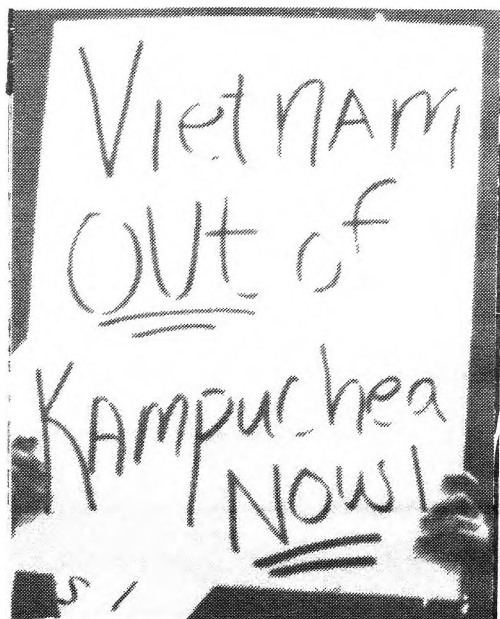 VietnAm
OUt of
KAmpuchea
NOW!